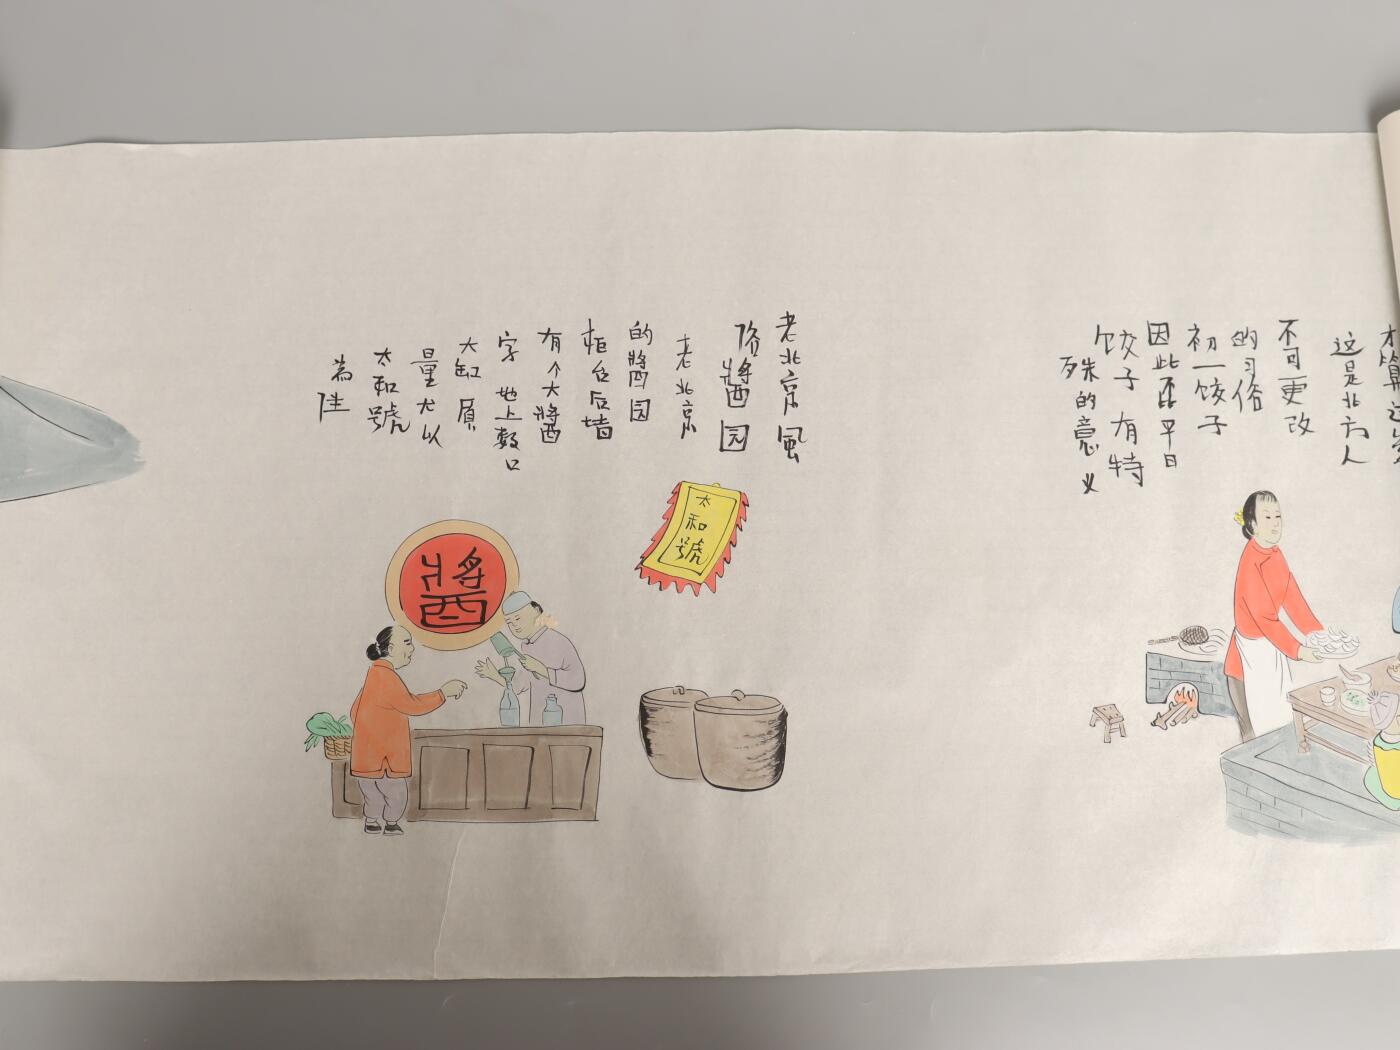 这是北方人
不可更改
的习俗
初一饺子
因此 平日
饺子有特
殊的意义
老北京風
俗醬园
老北京
的醬园
柜台后墙
有个大醬
字 地上数口
大缸 质
量尤以
太和號
為佳
太和號
醬